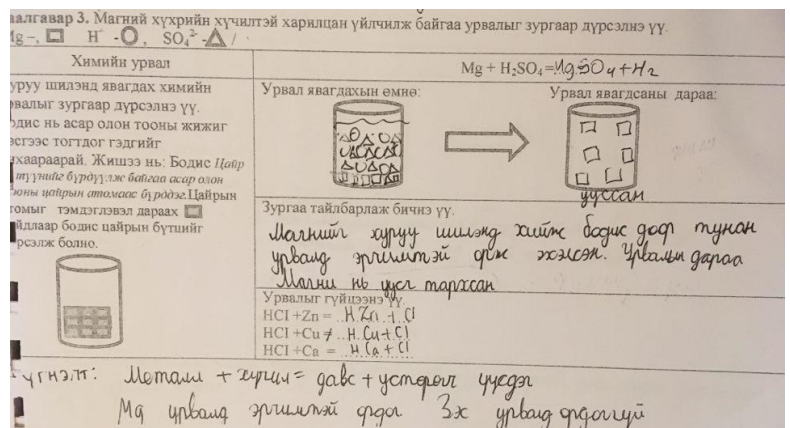 алгавар 3. Магний хүхрийн хүчилтэй харилцан үйлчилж байгаа урвалыг зургаар дүрсэлнэ үү.
Mg –, H⁺ -, SO₄²⁻ - /
Химийн урвал
Mg + H₂SO₄ = MgSO₄ + H₂
уруу шилэнд явагдах химийн
рвалыг зургаар дүрсэлнэ үү.
одис нь асар олон тооны жижиг
эсгээс тогтдог гэдгийг
нхаараарай. Жишээ нь: Бодис Цайр
түүнийг бүрдүүлж байгаа асар олон
оны цайрын атомаас бүрддэг. Цайрын
томыг тэмдэглэвэл дараах
йдлаар бодис цайрын бүтцийг
рсэлж болно.
Урвал явагдахын өмнө:
Урвал явагдсаны дараа:
ууссан
Зургаа тайлбарлаж бичнэ үү.
Магнийг хуруу шилэнд хийж бодис доор тунан
урвалд эрчимтэй орж эхэлсэн. Урвалын дараа
Магни нь уусч тархсан
Урвалыг гүйцээнэ үү.
HCl +Zn = H Zn + Cl
HCl +Cu ≠ H Cu + Cl
HCl +Ca = H Ca + Cl
үгнэлт: Металл + хүчил = давс + устөрөгч үүсдэг
Mg урвалд эрчимтэй ордог Зэх урвалд ордоггүй